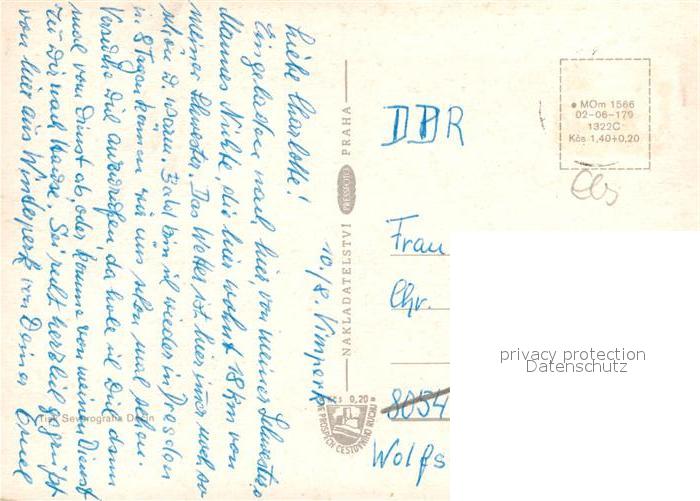 10./8. Vimperk
Liebe Charlotte!
Eingeladen nach hier, von meiner Schwester
Mannes Nichte, die hier wohnt 18 km von
meiner Schwester. Das Wetter ist hier immer noch so
schön u. warm. Bald bin ich wieder in Dresden
in 8 Tagen können wir uns schon mal sehen.
Versuche Dich anzurufen, da hole ich Dich dann
mal vom Dienst ab, oder komme von meinem Dienst
zu Dir nach Hause. Sei recht herzlich gegrüßt
von hier aus Winterperk von Deiner
Tisk Severografia Děčín
NAKLADATELSTVÍ PRESSFOTO PRAHA
Kčs 0,20
VE PROSPĚCH CESTOVNÍHO RUCHU
MOm 1566
02-06-179
1322C
Kčs 1,40+0,20
DDR
Frau
Chr.
8054
Wolfs
privacy protection
Datenschutz